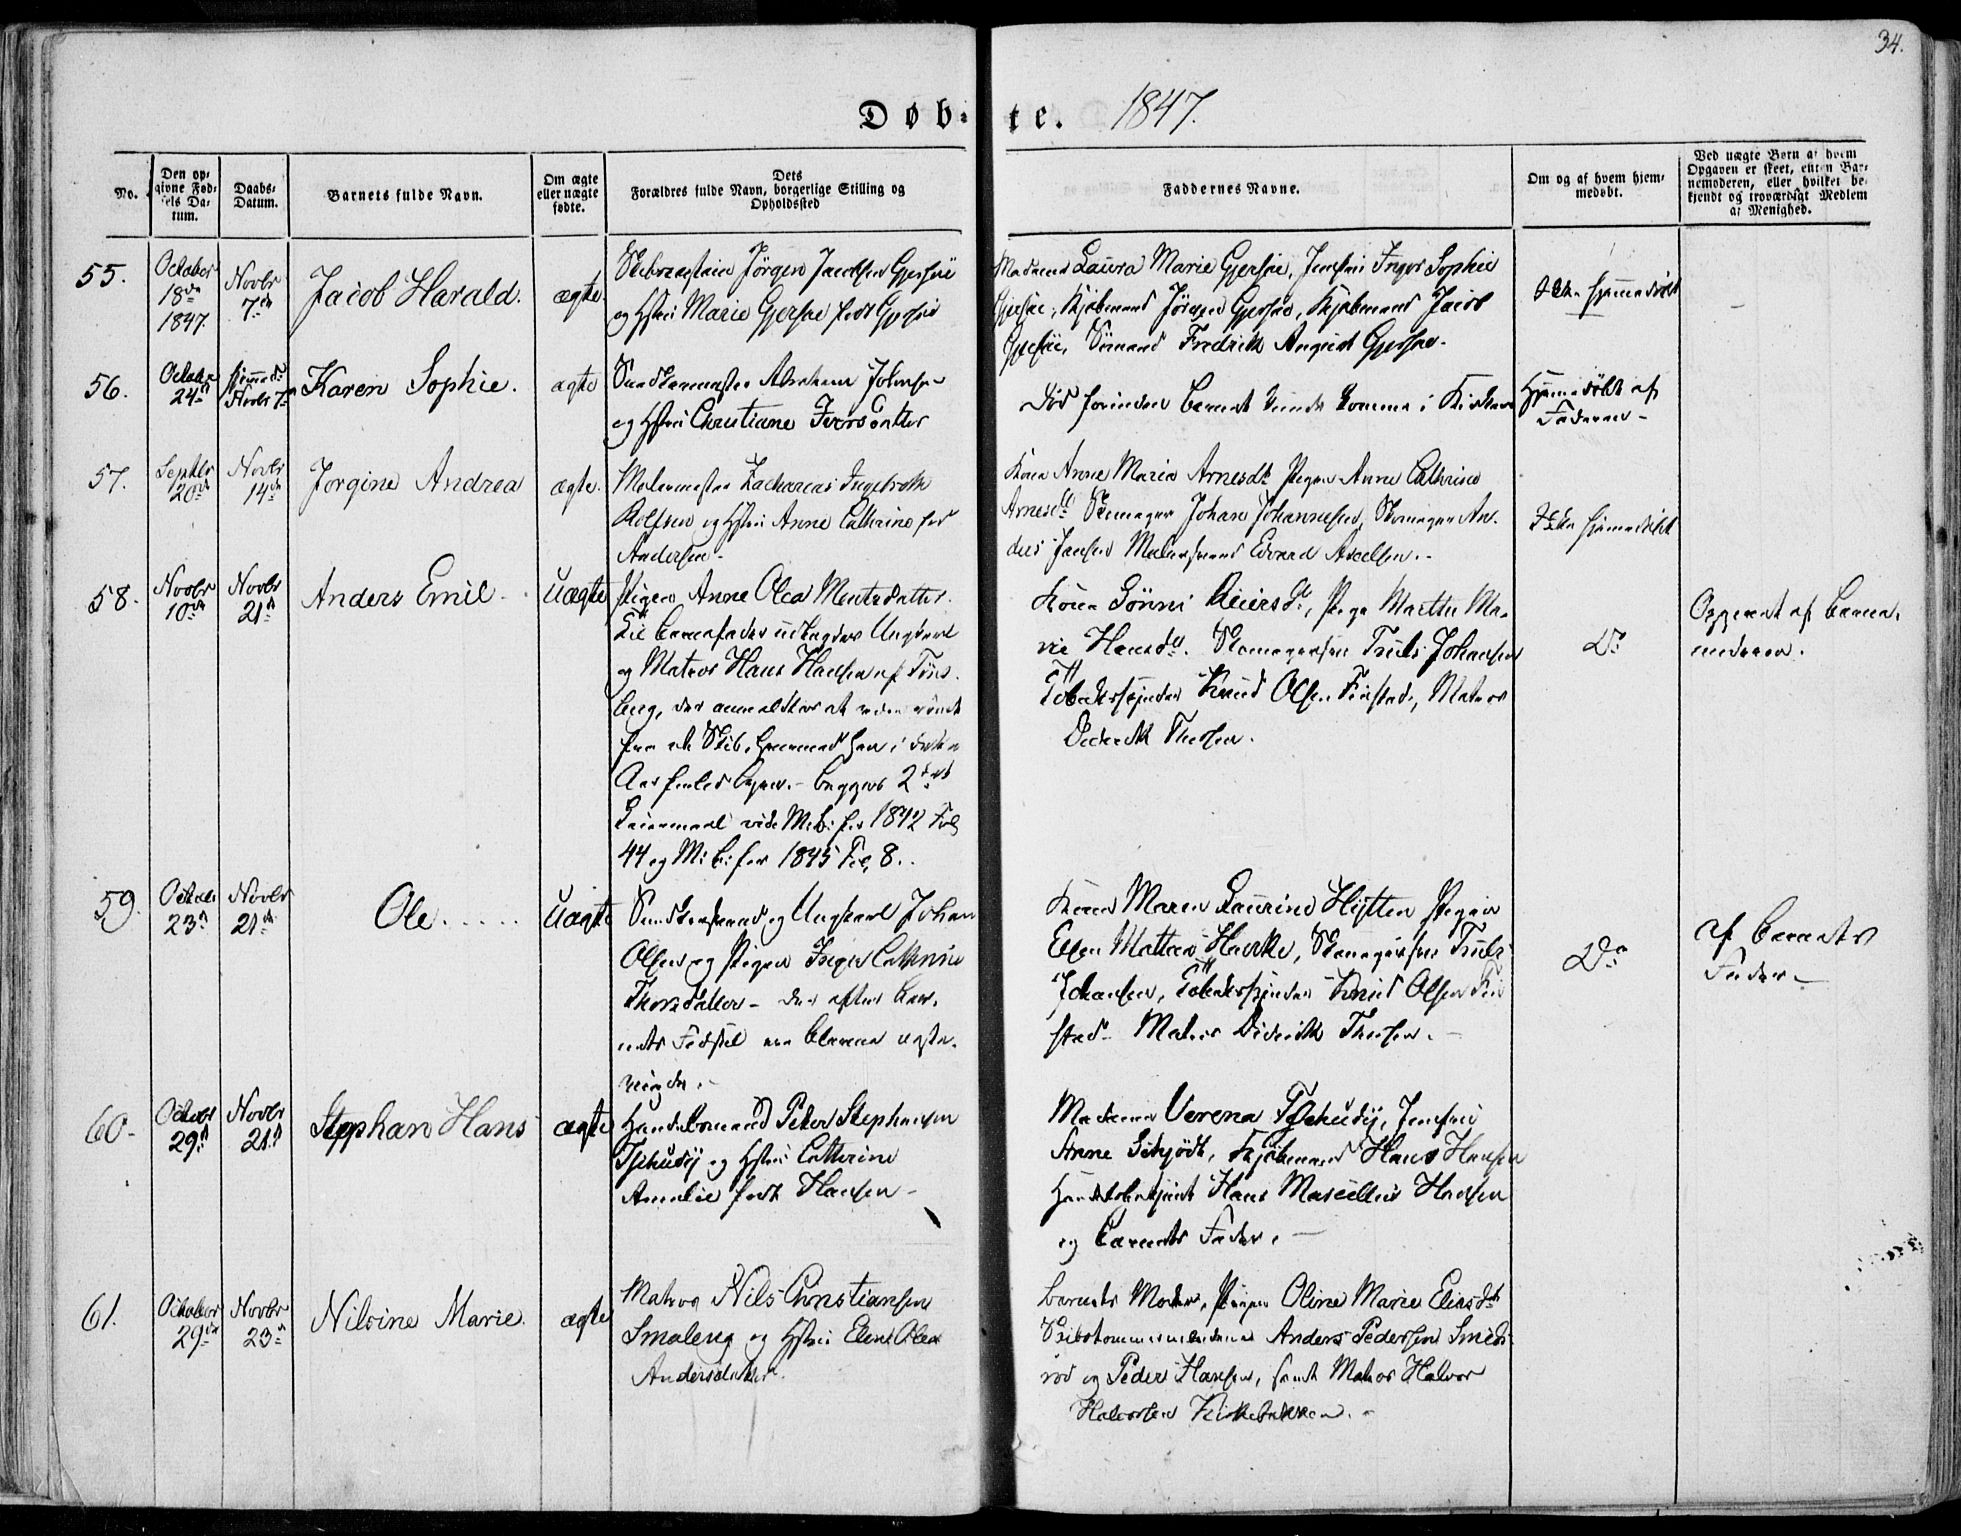 34.
Døb-te. 1847.
No.
Den op-
givne Fød-
sels Da-
tum.
Daabs-
Datum.
Barnets fulde Navn.
Om ægte
eller uægte
fødte.
Dets
Forældres fulde Navn, borgerlige Stilling og
Opholdssted
Faddernes Navne.
Om og af hvem hjem-
medøbt.
Ved uægte Børn af hvem
Opgaven er skeet, enten Bar-
nemoderen, eller hvilket be-
kjendt og troværdigt Medlem
af Menighed.
55.
October
18de
1847.
Novbr
7de
Jacob Harald.
ægte.
Jørgen Jacobsen Gjersøe
og Hstrü Marie Gjersøe født Gjersøe
Madame Laura Marie Gjersøe, Jomfrü Inger Sophie
Gjersøe, Kjøbmand Jörgen Gjersøe, Kjøbmand Jacob
Gjersøe, Sömand Fredrik August Gjersøe.
Ikke hjemmedöbt
56.
October
24de
Hjemmed.
Novbr 7de
Karen Sophie.
ægte
Abraham Johnsen
og Hstrü Christiane Iversdatter
Död forinden Barnet kunde komme i Kirken
Hjemmedöbt af
Faderen
57.
Septbr
20de
Novbr
14de
Jørgine Andrea
ægte.
Malermester Zacharias Ingebreth
Rolfsen og Hstrü Anne Cathrine föd
Andersen
Kone Anne Maria Arnesdtr Pigen Anne Cathrine
Arnesdtr Skomager Johan Johannesen, Skomager An-
ders Jensen Malersvend Edvard Axelsen.
Ikke hjemmedöbt
58.
Novbr
10de
Novbr
21de
Anders Emil
Uægte
Pigen Anne Olea Mentzdatter.
Til Barnefader udlagdes Ungkarl
og Matros Hans Hansen af Töns-
berg, der
Skib, han i dette
Aar - begges 2det
Leiermaal vide M.B. for 1842 Fol
44 og M.B. for 1845 Fol 8.
Kone Gönni Reiersdtr, Pige Marthe Ma-
rie Hansdtr. Truls Johansen
Tobakspinder Knud Olsen Finstad, Matros
Diderik Thersen.
Do
Opgivet af Barne-
moderen.
59.
Octobr
23de
Novbr
21de
Ole.
Uægte
og Ungkarl Johan
Olsen og Pigen Inger Cathrine
Thorsdatter - der efter Bar-
nets Födsel ere blevne ægte-
viede.
Kone Maren Laurine Hytten Pigen
Ellen Mathea Houcke, Truls
Johansen, Tobakspinder Knud Olsen Fin
stad Matros Diderik Thersen.
Do
af Barnets
Fader
60.
Octobr
29de
Novbr
21de
Stephan Hans
ægte
Handelsmand Peter Stephansen
Tschudÿ og Hstrü Cathrine
Amalie født Hansen
Madame Verena Tschudÿ, Jomfrü
Anne Schjödt, Kjøbmand Hans Hansen
Handelsbetjent Hans Marcellius Hansen
og Barnets Fader.
61.
October
29de
Novbr
23de
Nilvine Marie.
ægte
Matros Nils Christiansen
Smaleng og Hstrü Elene Olea
Andersdatter.
Barnets Moder, Pigen Oline Marie Eliasdtr
Skibstømmermændene Anders Pedersen Smeds-
rød og Peder Hansen, samt Matros Halvor
Halvorsen Kirkebakken.